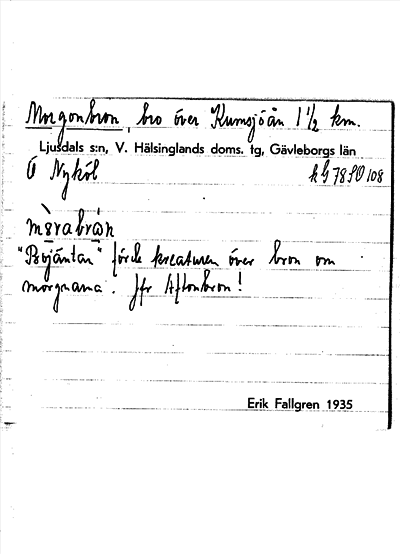 Morgonbron, bro över Kumsjöån 1 1/2 km.
Ljusdals s:n, V. Hälsinglands doms. tg, Gävleborgs län
Ö Nyköl
mòrabrὼn
"Böjäntan" förde kreaturen över bron om
morgnarna. Jfr Aftonbron!
Erik Fallgren 1935